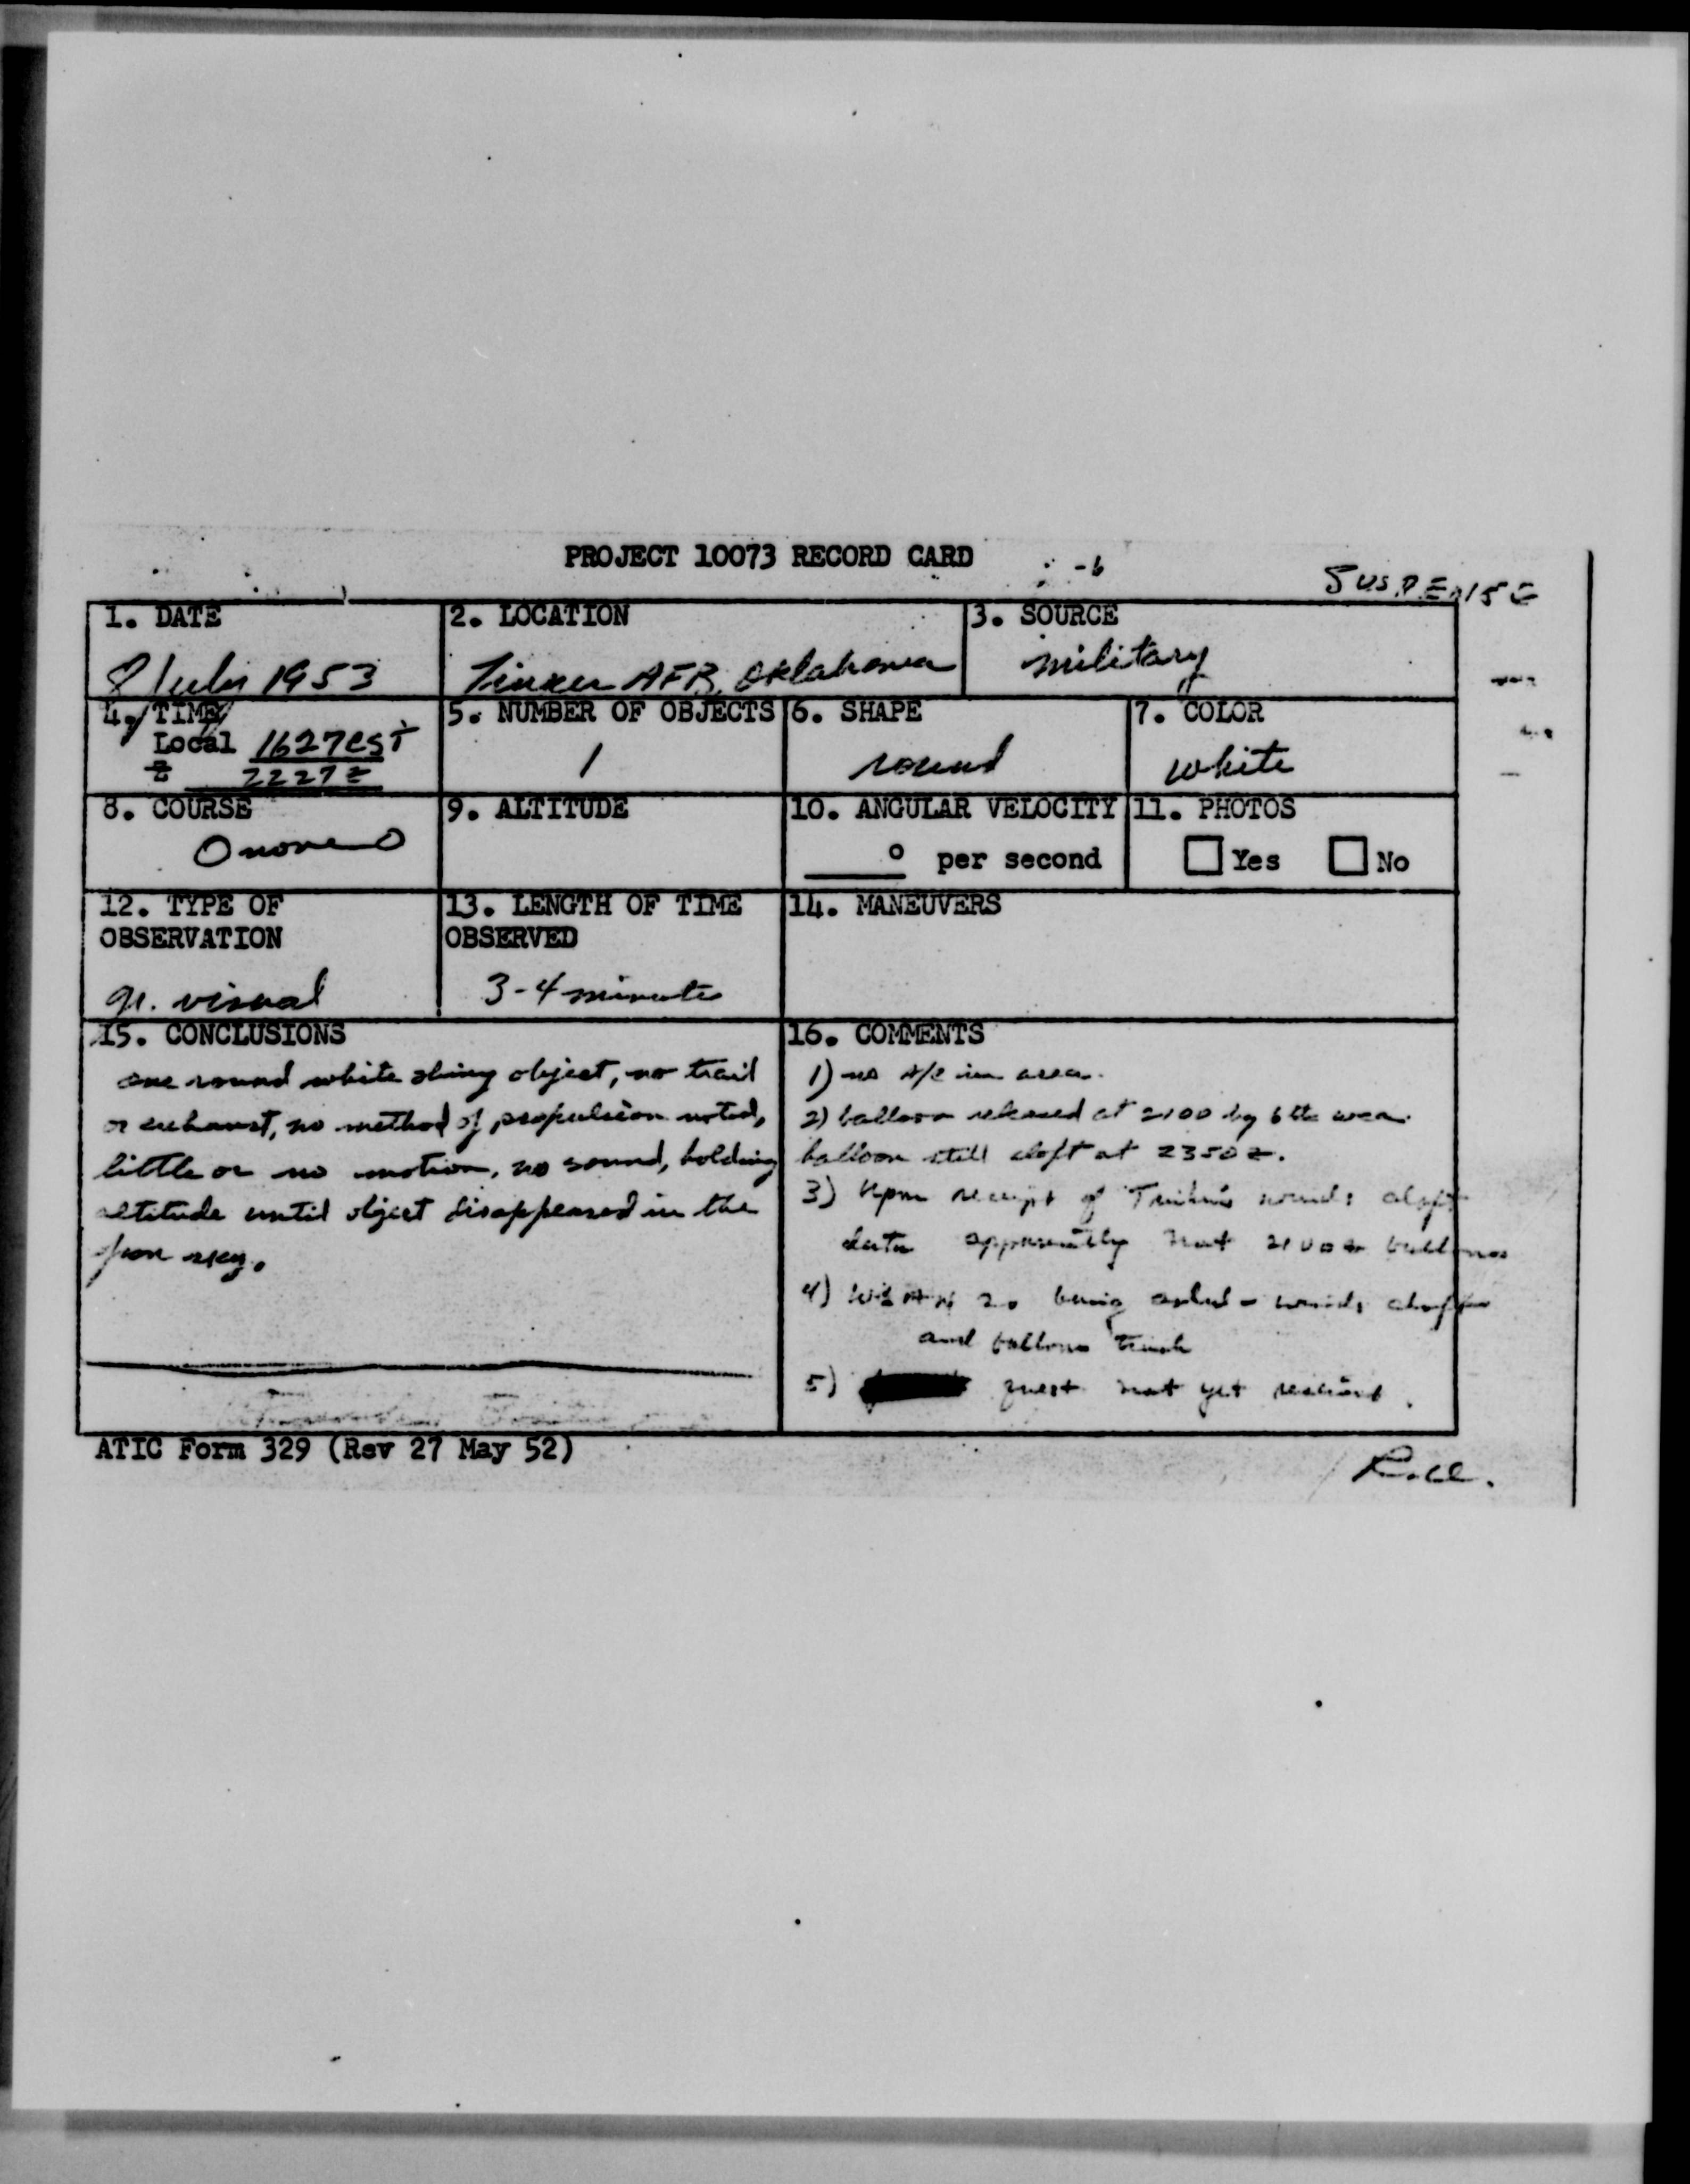 PROJECT 10073 RECORD CARD
SUSPENSE
1. DATE
8 July 1953
2. LOCATION
Tinker AFB, Oklahoma
3. SOURCE
military
4. TIME
Local 1627est
Z 2227z
5. NUMBER OF OBJECTS
1
6. SHAPE
round
7. COLOR
white
8. COURSE
none
9. ALTITUDE
10. ANGULAR VELOCITY
° per second
11. PHOTOS
Yes No
12. TYPE OF
OBSERVATION
gr. visual
13. LENGTH OF TIME
OBSERVED
3-4 minutes
14. MANEUVERS
15. CONCLUSIONS
one round white shiny object, no trail
or exhaust, no method of propulsion noted,
little or no motion, no sound, holding
altitude until object disappeared in the
sky.
16. COMMENTS
1) no A/C in area.
2) balloon released at 2100 by 6th wea.
balloon still aloft at 2350z.
3) Upon receipt of winds aloft
data apparently not 2100z balloon
4) 20 being asked - winds
and balloon track
5) quest not yet received.
ATIC Form 329 (Rev 27 May 52)